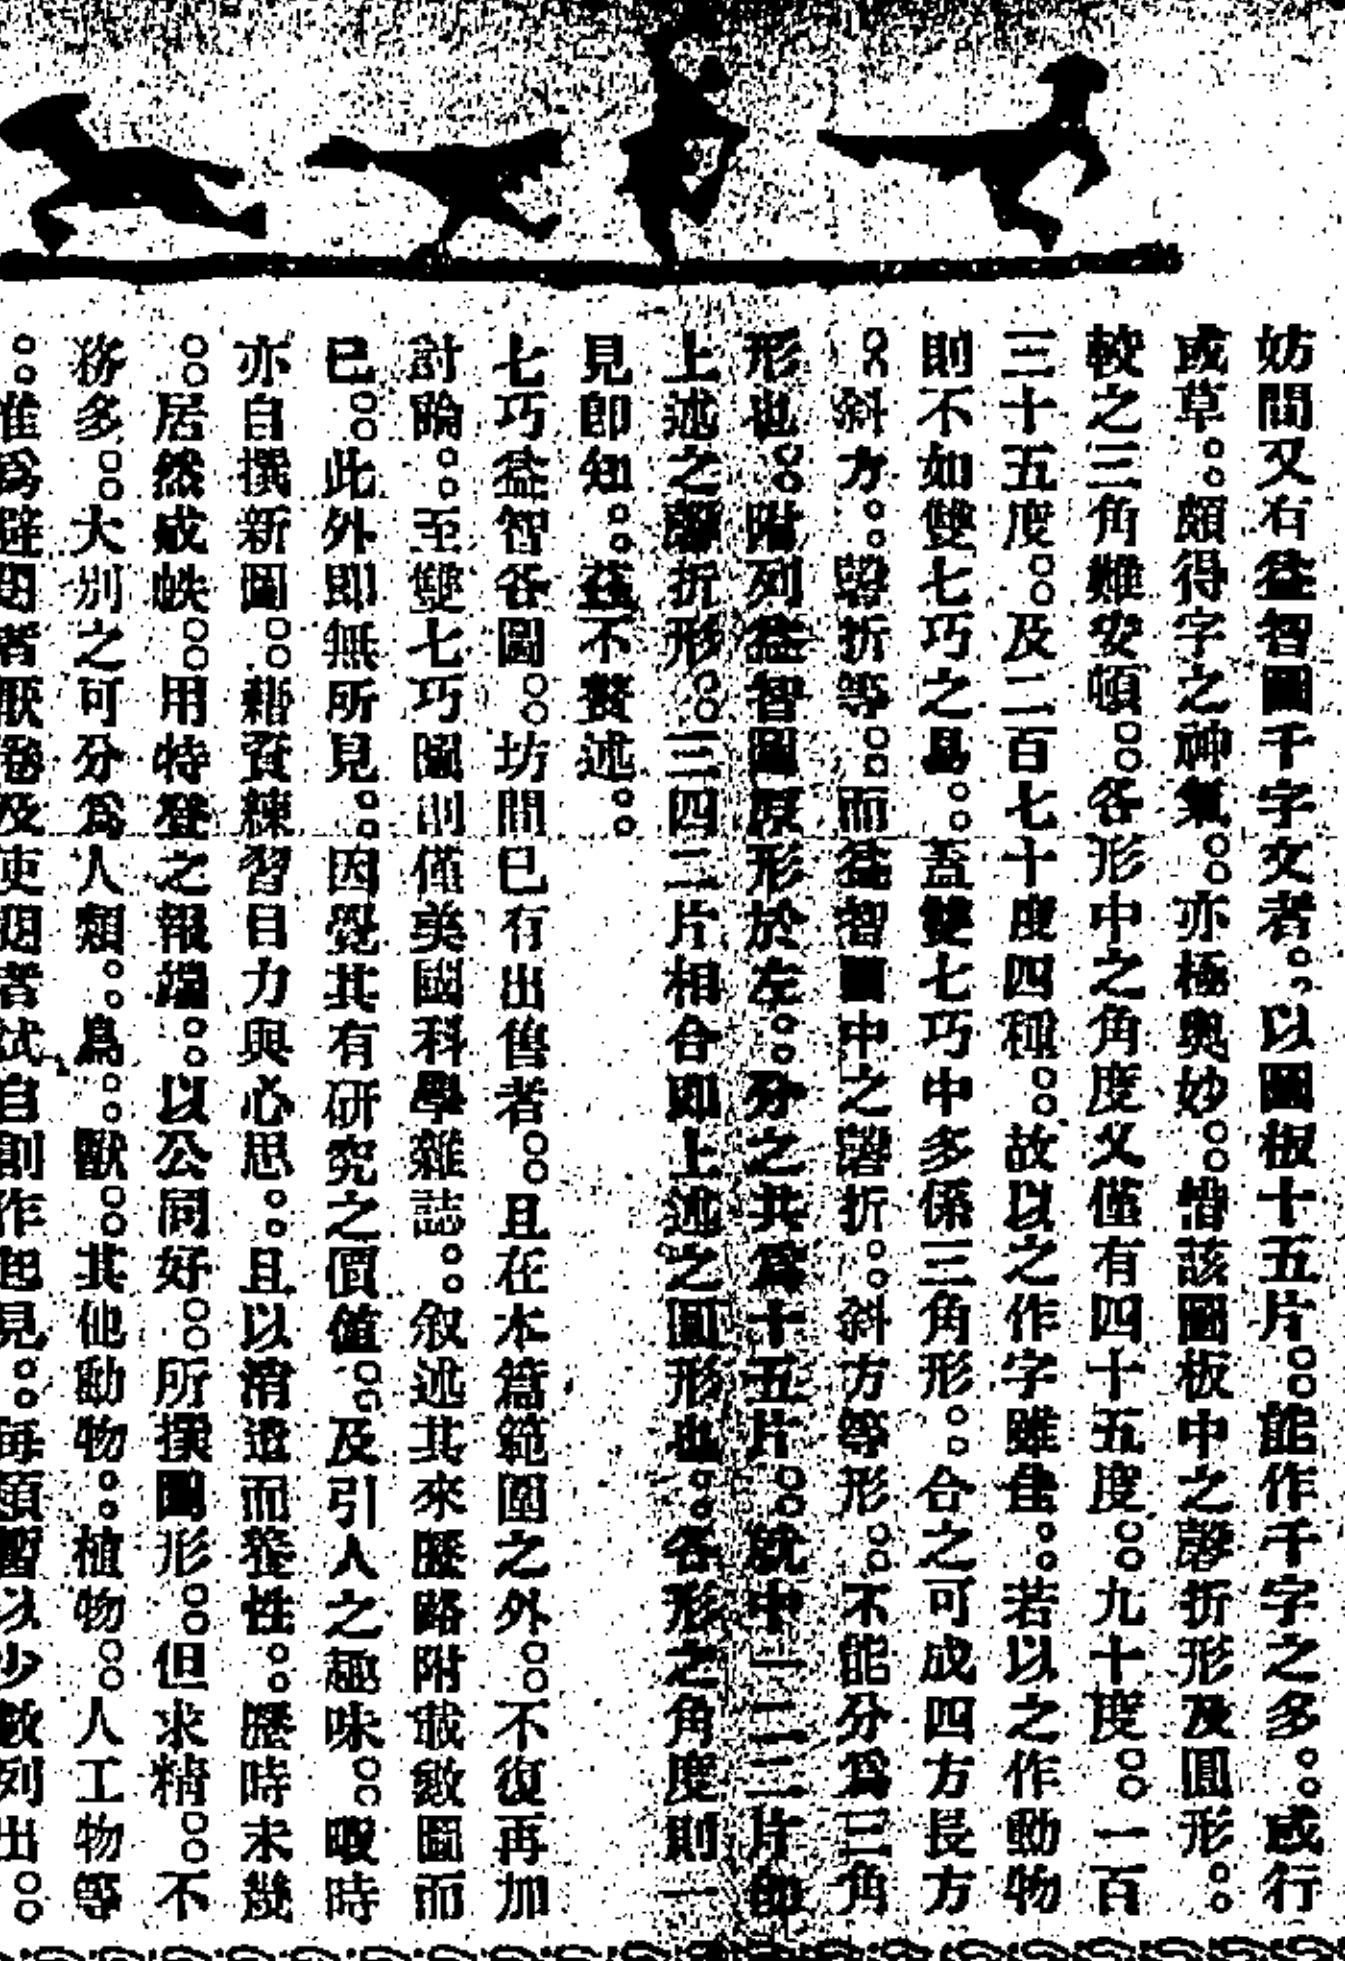 妨間又有益智圖千字文者。以圖板十五片。能作千字之多。或行
或草。頗得字之神氣。亦極奧妙。惜該圖板中之磬折形及圓形。
較之三角難安頓。各形中之角度又僅有四十五度。九十度。一百
三十五度。及二百七十度四種。故以之作字雖佳。若以之作動物
則不如雙七巧之易。蓋雙七巧中多係三角形。合之可成四方長方
。斜方。磬折等。而益智圖中之磬折。斜方等形。不能分爲三角
形也。附列益智圖原形於左。分之共爲十五片。就中一二三片卽
上述之磬折形。三四二片相合即上述之圓形也。各形之角度則一
見即知。茲不贅述。
七巧益智各圖。坊間已有出售者。且在本篇範圍之外。不復再加
討論。至雙七巧圖則僅美國科學雜誌。叙述其來歷略附載數圖而
已。此外即無所見。因覺其有研究之價值。及引人之趣味。暇時
亦自撰新圖。藉資練習目力與心思。且以消遣而養性。歷時未幾
。居然成帙。用特登之報端。以公同好。所撰圖形。但求精。不
務多。大別之可分爲人類。鳥。獸。其他動物。植物。人工物等
。惟爲避閱者厭倦及使閱者試自創作起見。每類暫以少數列出。